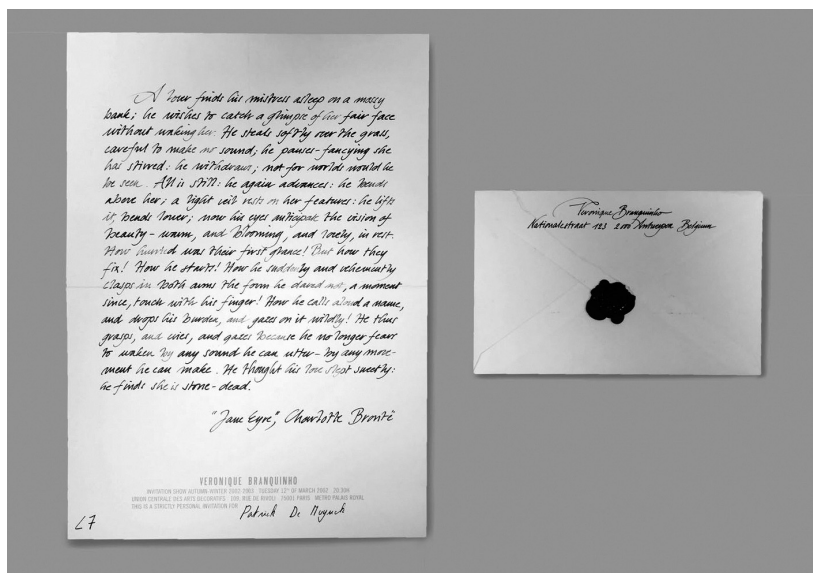 A lover finds his mistress asleep on a mossy
bank; he wishes to catch a glimpse of her fair face
without waking her. He steals softly over the grass,
careful to make no sound; he pauses - fancying she
has stirred: he withdraws; not for worlds would he
be seen. All is still: he again advances: he bends
above her; a light veil rests on her features: he lifts
it, bends lower; now his eyes anticipate the vision of
beauty - warm, and blooming, and lovely, in rest.
How hurried was their first glance! But how they
fix! How he starts! How he suddenly and vehemently
clasps in both arms the form he dared not, a moment
since, touch with his finger! How he calls aloud a name,
and drops his burden, and gazes on it wildly! He thus
grasps, and cries, and gazes because he no longer fears
to waken by any sound he can utter - by any move-
ment he can make. He thought his love slept sweetly:
he finds she is stone-dead.
"Jane Eyre", Charlotte Brontë
VERONIQUE BRANQUINHO
INVITATION SHOW AUTUMN-WINTER 2002-2003 TUESDAY 12TH OF MARCH 2002 20.30H
UNION CENTRALE DES ARTS DECORATIFS 109, RUE DE RIVOLI 75001 PARIS METRO PALAIS ROYAL
THIS IS A STRICTLY PERSONAL INVITATION FOR Patrick De Muynck
L7
Veronique Branquinho
Nationalestraat 123 2000 Antwerpen Belgium